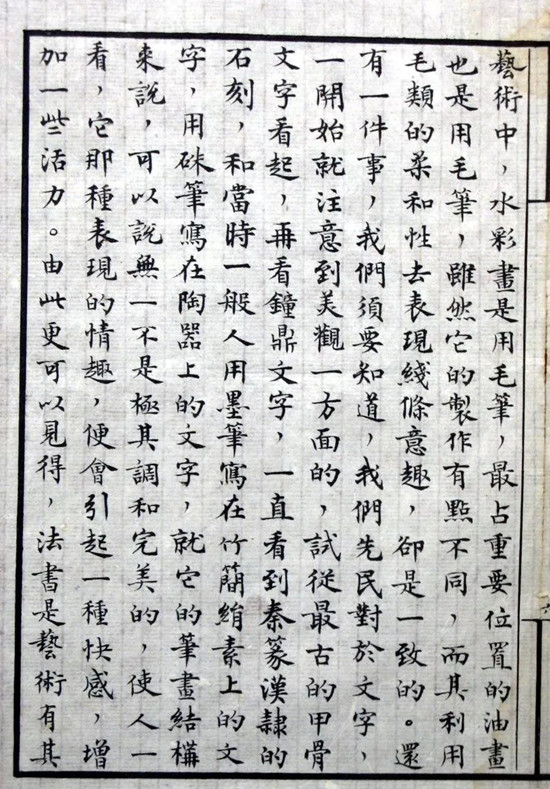 藝術中，水彩畫是用毛筆，最占重要位置的油畫
也是用毛筆，雖然它的製作有點不同，而其利用
毛類的柔和性去表現綫條意趣，卻是一致的。還
有一件事，我們須要知道，我們先民對於文字，
一開始就注意到美觀一方面的，試從最古的甲骨
文字看起，再看鐘鼎文字，一直看到秦篆漢隸的
石刻，和當時一般人用墨筆寫在竹簡絹素上的文
字，用硃筆寫在陶器上的文字，就它的筆畫結構
來說，可以說無一不是極其調和完美的，使人一
看，它那種表現的情趣，便會引起一種快感，增
加一些活力。由此更可以見得，法書是藝術有其
六